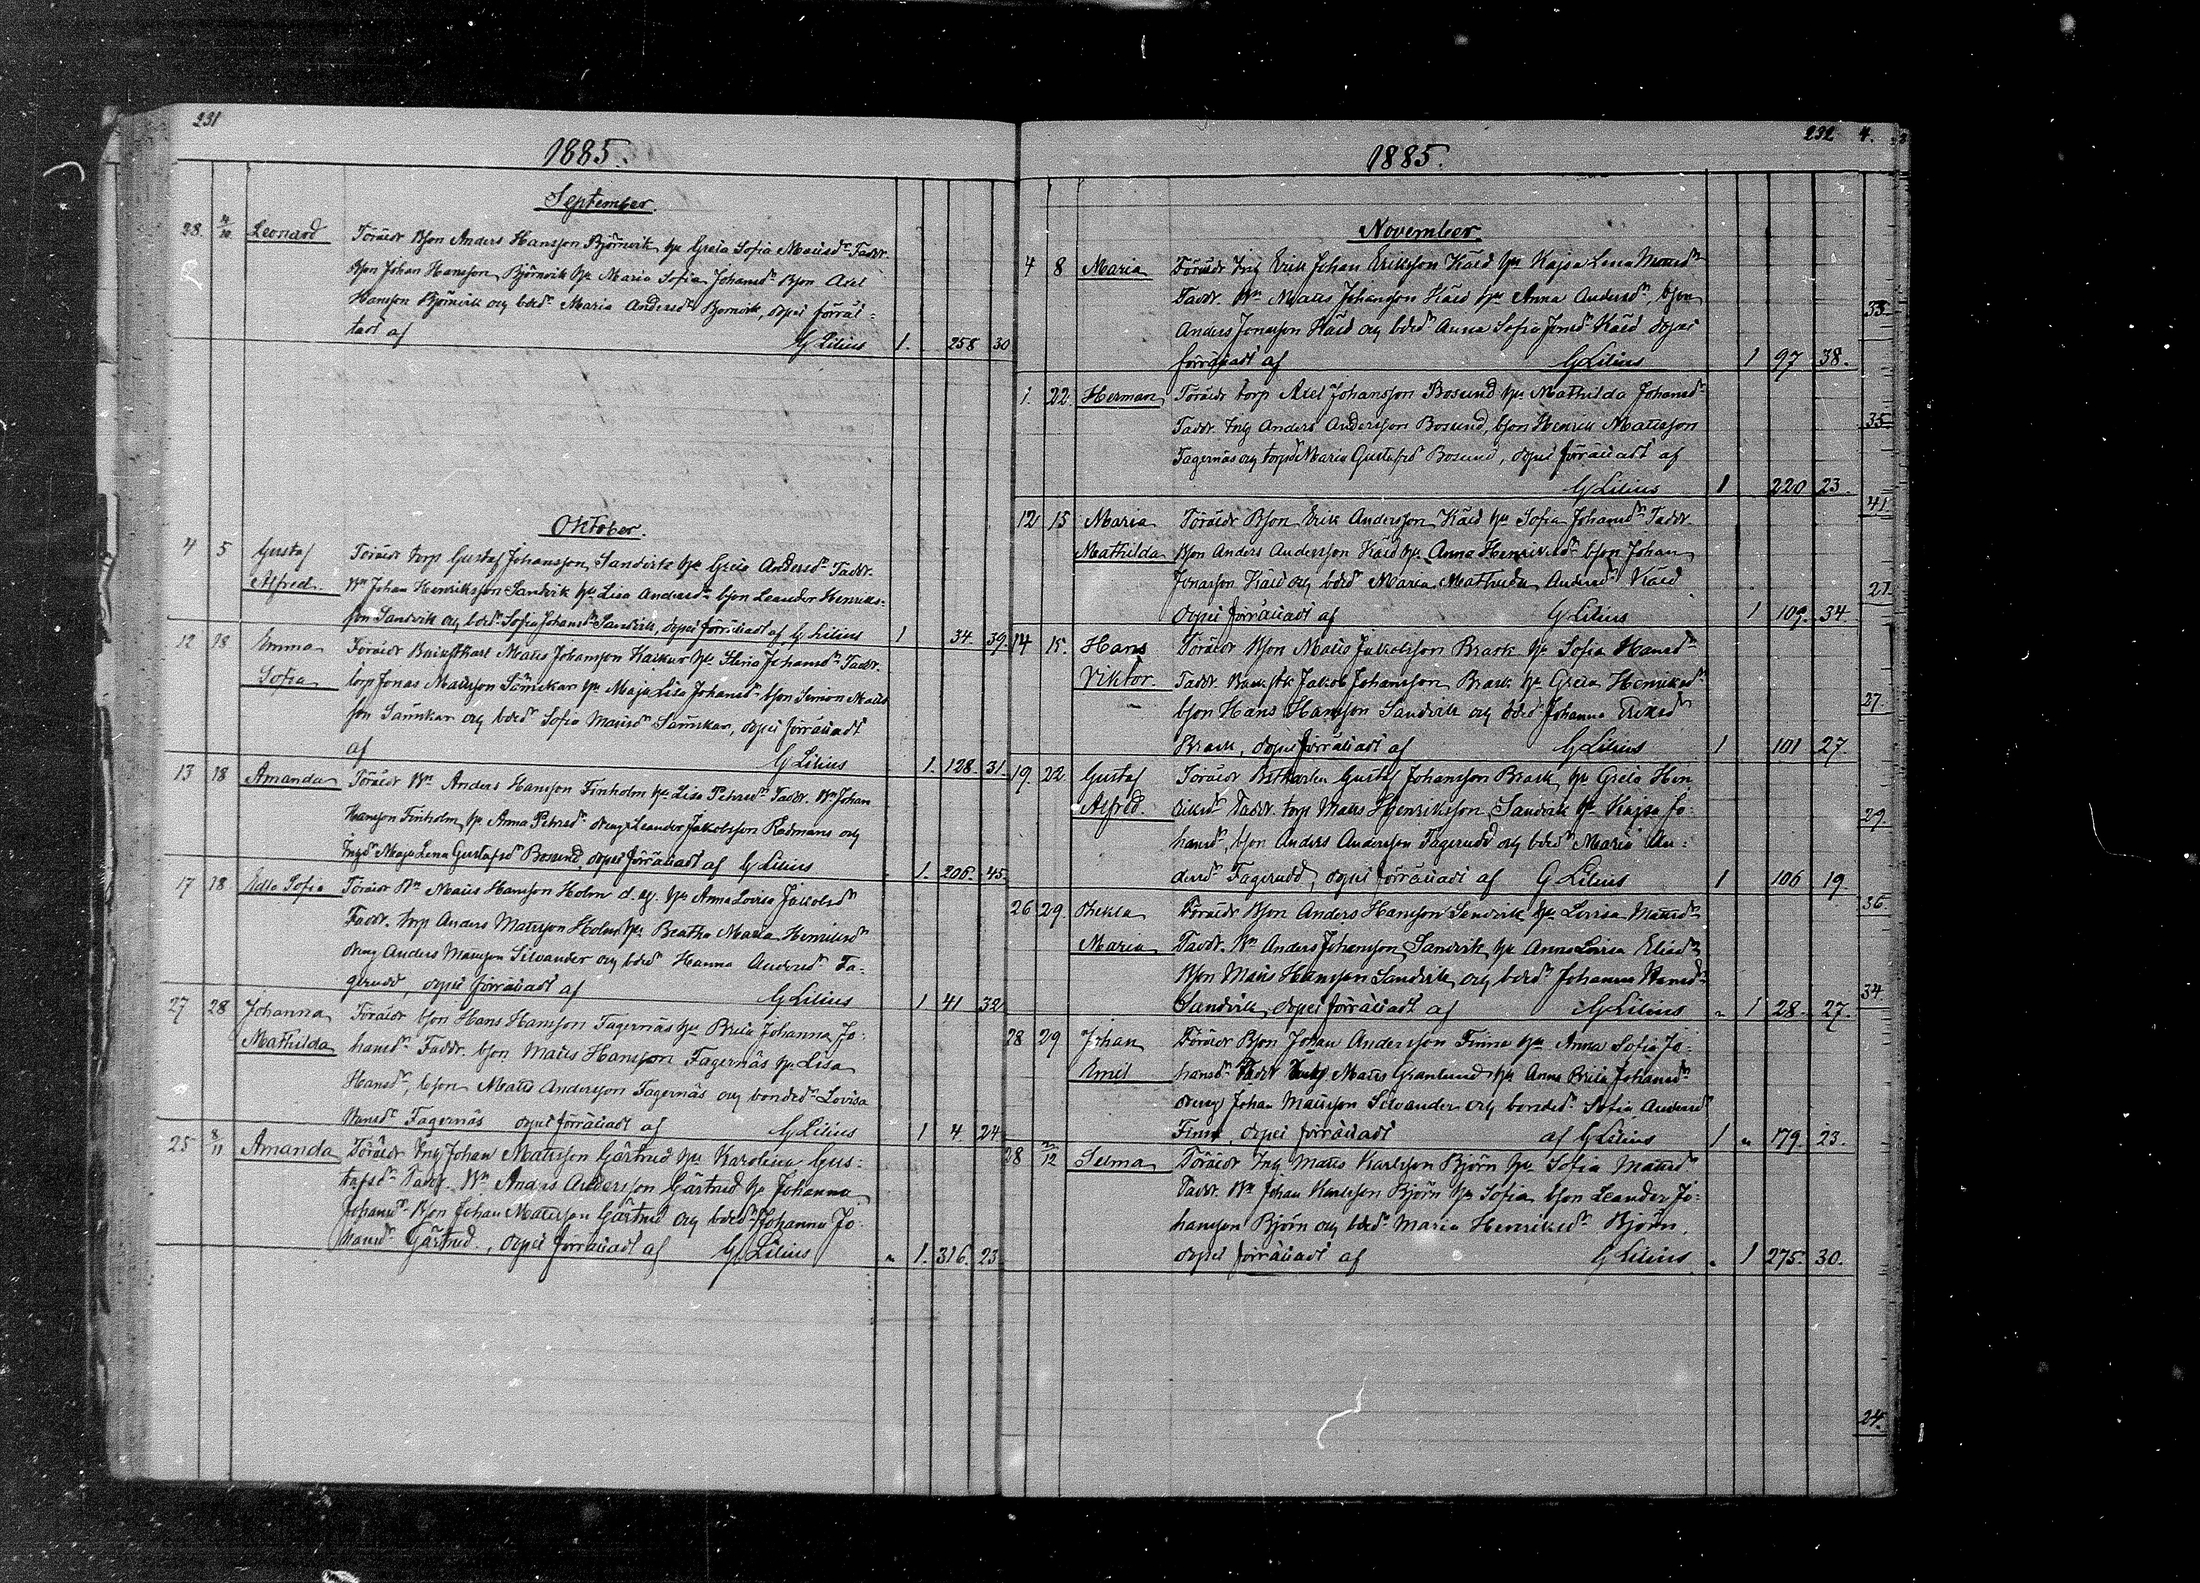 231
1885.
September.
28. 4/10 Leonard Föräldr Bson Anders Hansson Björnvik hu Greta Sofia Mattsdr Faddr.
Bson Johan Hansson Björnvik hu Maria Sofia Johansdr Bson Axel
Hansson Björnvik och bdrdr Maria Andersdr Björnvik, döpt förrät-
tadt af G Lilius 1. 258 30
Oktober.
4 5 Gustaf Föräldr torp Gustaf Johansson Sandvik hu Greta Andersdr Faddr.
Alfred Bn Johan Henriksson Sandvik hu Lisa Andersdr bson Leander Henriks-
son Sandvik och bdrdr Sofia Johansdr Sandvik, döpet förrättadt af G Lilius 1 34. 39.
12 18 Emma Föräldr Mats Johansson hu Stina Johansdr Faddr.
Sofia torp Jonas Mattsson hu Maja Lisa Johansdr bson Simon Matts
son och bdrdr Sofia Mattsdr, döpet förrättadt
af G Lilius 1. 128. 31.
13 18 Amanda Föräldr Bn Anders Hansson Finholm hu Lisa Pehrsdr Faddr. Bn Johan
Hansson Finholm hu Anna Pehrsdr dreng Leander Jakobsson Rådmans och
Maja Lena Gustafsdr Bosund, döpet förrättadt af G Lilius 1. 206. 45
17 18 Edla Sofia Föräldr Bn Matts Hansson Holm d. y. hu Anna Lovisa Jakobsdr
Faddr. torp Anders Mattsson Holm hu Beatha Maria Henriksdr
dreng Anders Mattsson Silvander och bdrdr Hanna Andersdr Fa-
gerudd, döpet förrättadt af G Lilius 1 41 32
27 28 Johanna Föräldr bson Hans Hansson Fagernäs hu Brita Johanna Jo-
Mathilda hansdr Faddr. bson Matts Hansson Fagernäs hu Lisa
Hansdr, bson Matts Andersson Fagernäs och bondedr Lovisa
Hansdr Fagernäs döpet förrättadt af G Lilius 1 4 24
25 8/11 Amanda Föräldr Johan Mattsson Gärtned hu Karolina Gus-
tafsdr Faddr. Bn Anders Andersson Gärtned hu Johanna
Johansdr Bson Johan Mattsson Gärtned och bdrdr Johanna Jo-
hansdr Gärtned, döpet förrättadt af G Lilius " 1. 316. 23
232 4.
1885.
November.
4 8 Maria Föräldr Erik Johan Eriksson Käld hu Kajsa Lena
Faddr. Bn Matts Johansson Käld hu Anna Andersdr, bson
Anders Jonasson Käld och bdrdr Anna Sofia Jonsdr Käld döpet
förrättadt af G Lilius 1 97 38.
1. 22. Herman Föräldr torp Axel Johansson Bosund hu Mathilda Johansdr
Faddr. Anders Andersson Bosund, bson Henrik Mattsson
Fagernäs och Maria Gustafsdr Bosund, döpet förrättadt af
G Lilius 1 220 23.
12 15 Maria Föräldr Bson Erik Andersson Käld hu Sofia Johansdr Faddr.
Mathilda Bson Anders Andersson Käld hu Anna Henriksdr bson Johan
Jonasson Käld och bdrdr Maria Mathilda Andersdr Käld
döpet förrättadt af G Lilius 1 109. 34
14 15. Hans Föräldr Bson Matts Jakobsson Brask hu Sofia Hansdr
Viktor. Faddr. Jakob Johansson Brask hu Greta Henriksdr
bson Hans Hansson Sandvik och bdrdr Johanna Eriksdr
Brask, döpet förrättadt af G Lilius 1 101 27.
19. 22 Gustaf Föräldr Gustaf Johansson Brask hu Greta Hen
Alfred. riksdr Faddr. torp Matts Henriksson Sandvik hu Kajsa Jo-
hansdr, bson Anders Andersson Fagerudd och bdrdr Maria An-
dersdr Fagerudd, döpet förrättadt af G Lilius 1 106 19
26 29. Thekla Föräldr Bson Anders Hansson Sandvik hu Lovisa Mattsdr
Maria Faddr. Bn Anders Johansson Sandvik hu Anna Lovisa Eliasdr
Bson Matts Hansson Sandvik och bdrdr Johanna Hansdr
Sandvik, döpet förrättadt af G Lilius " 1 28. 27.
28 29 Johan Föräldr Bson Johan Andersson Finne hu Anna Sofia Jo-
Emil hansdr Faddr Matts Granlund hu Anna Brita Johansdr
dreng Johan Mattsson Silvander och bondedr Sofia Andersdr
Finne, döpet förrättadt af G Lilius 1 " 179. 23.
28 2/12 Selma Föräldr Matts Karlsson Björn hu Sofia Mattsdr
Faddr. Bn Johan Karlsson Björn hu Sofia bson Leander Jo-
hansson Björn och bdrdr Maria Henriksdr Björn,
döpet förrättadt af G Lilius " 1 275. 30.
33
35
41
27
27
29.
36
34
24.